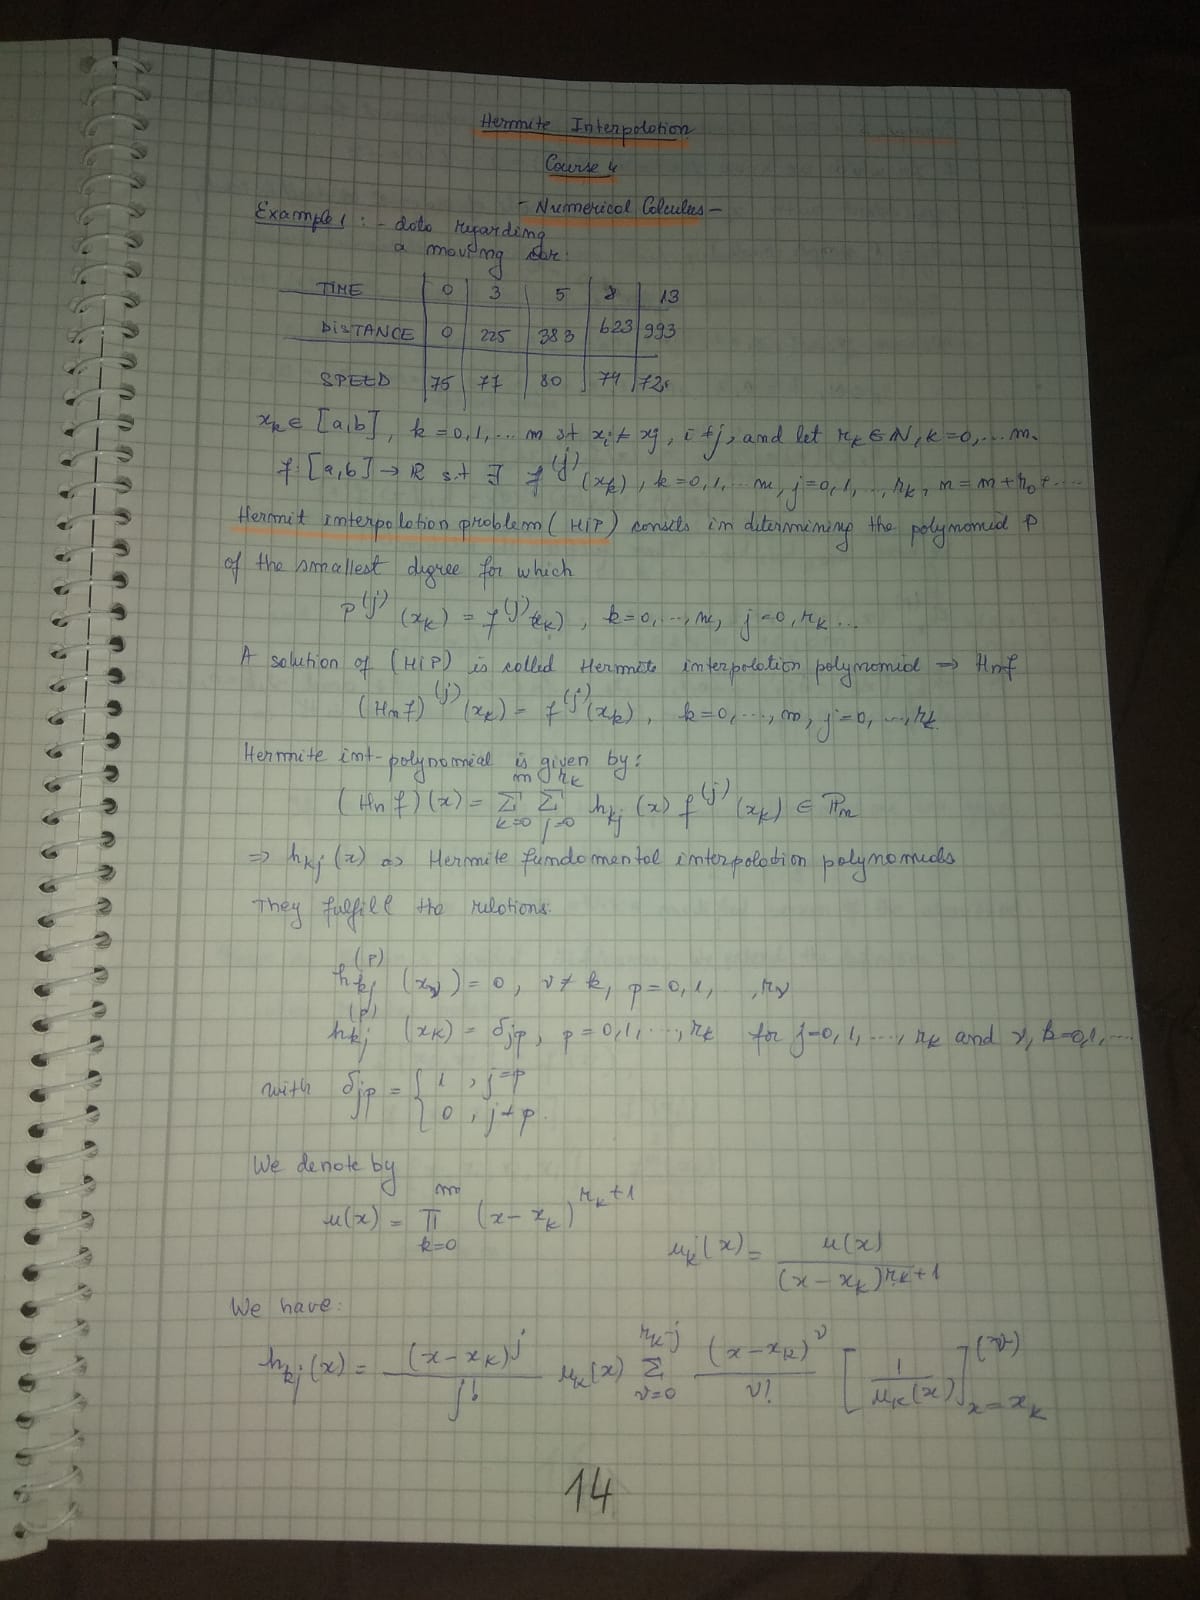 Hermite Interpolation
Course 4
- Numerical Calculus -
Example 1 : - data regarding
a moving car:
TIME 0 3 5 8 13
DISTANCE 0 225 383 623 993
SPEED 75 77 80 74 72
x_k ∈ [a,b], k=0,1,... m st x_i ≠ x_j, i≠j, and let r_k ∈ N, k=0,...m.
f: [a,b] → R s.t ∃ f^(j)(x_k), k=0,1,...m, j=0,1,...,r_k, n=m+r_0+....
Hermit interpolation problem (HIP) consits in determining the polynomial P
of the smallest degree for which
P^(j)(x_k) = f^(j)(x_k), k=0,...,m, j=0,r_k...
A solution of (HIP) is called Hermite interpolation polynomial ⇒ H_n f
(H_n f)^(j)(x_k) = f^(j)(x_k), k=0,...,m, j=0,...,r_k
Hermite int-polynomial is given by:
(H_n f)(x) = Σ_{k=0}^{m} Σ_{j=0}^{r_k} h_kj(x) f^(j)(x_k) ∈ P_n
⇒ h_kj(x) ⇒ Hermite fundamental interpolation polynomials
They fulfill the relations.
h_kj^(p)(x_ν) = 0, ν≠k, p=0,1,...,r_ν
h_kj^(p)(x_k) = δ_jp, p=0,1,...,r_k for j=0,1,...,r_k and ν,k=0,1,...
with δ_jp = { 1, j=p
0, j≠p.
We denote by
u(x) = Π_{k=0}^{m} (x-x_k)^{r_k+1}
u_k(x) = u(x) / (x-x_k)^{r_k+1}
We have:
h_kj(x) = (x-x_k)^j / j! u_k(x) Σ_{ν=0}^{r_k-j} (x-x_k)^ν / ν! [1 / u_k(x)]^(ν)_{x=x_k}
14